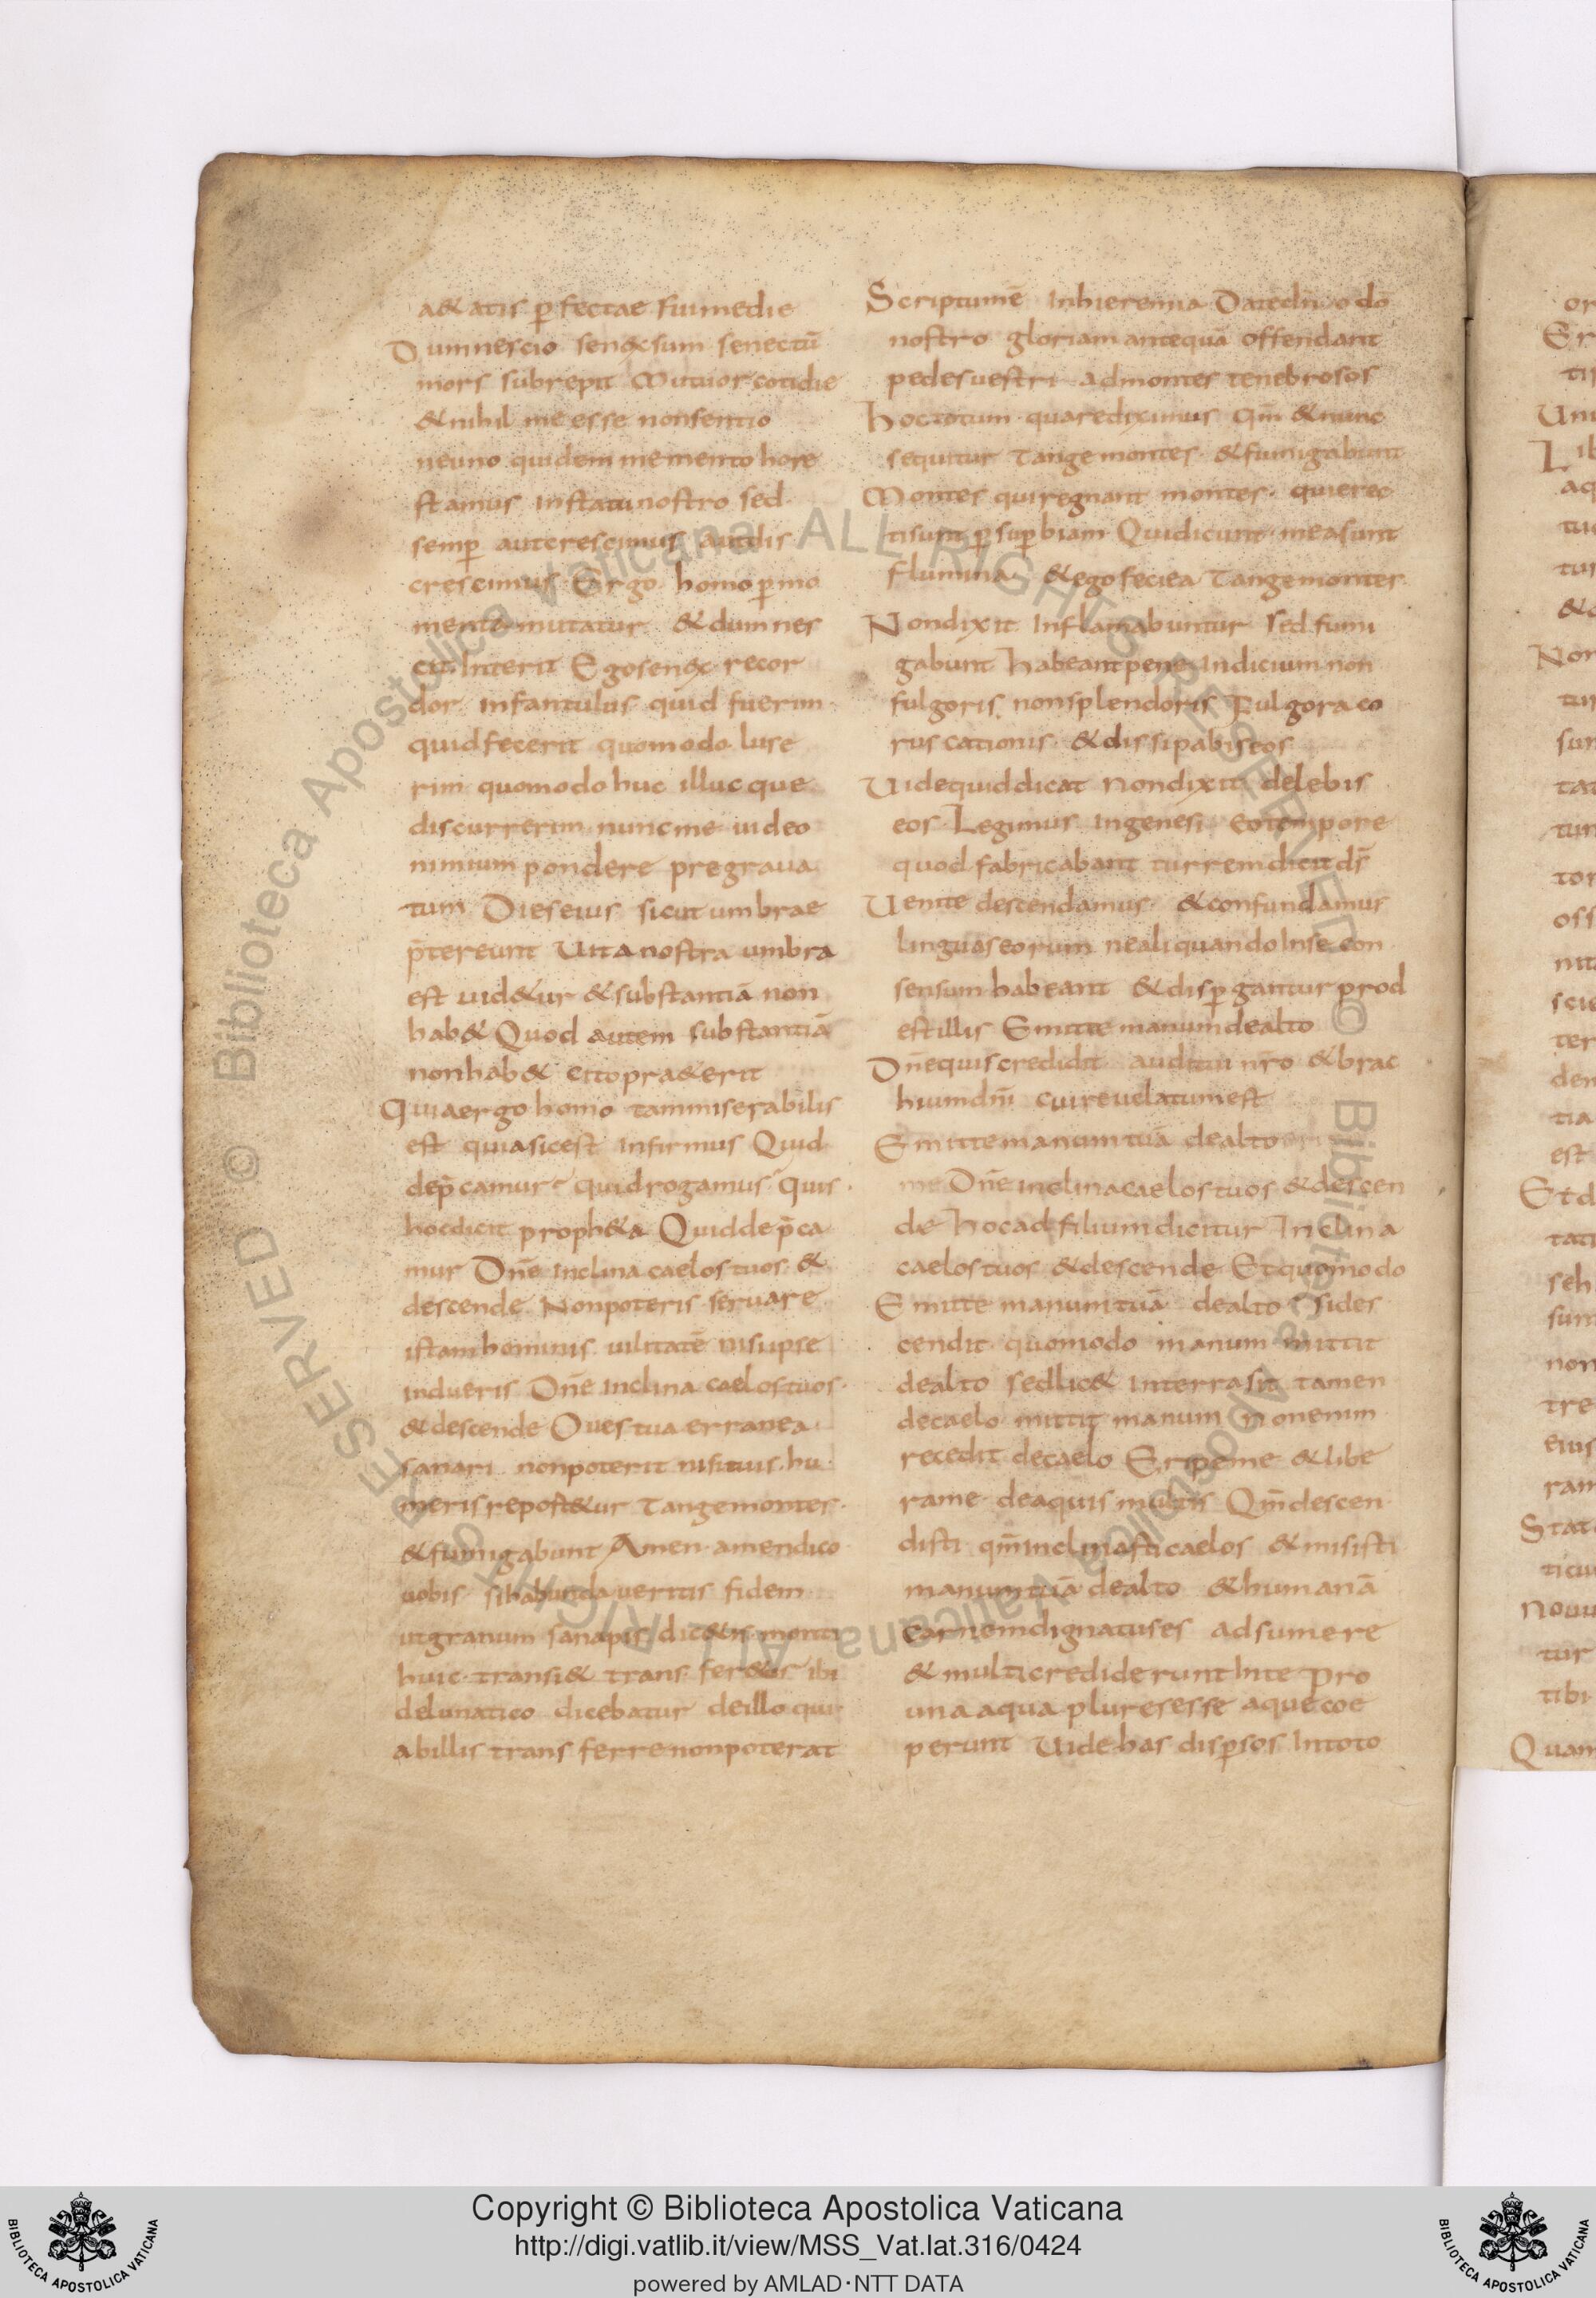 a&atis p̄fectae fui medie
Dum nescio senex sum senectū
mors subrepit Mutuor cotidie
& nihil me esse non sentio
ne uno quidem memento hore
stamus in statu nostro sed
semp̄ aut crescimus aut dis
crescimus Ergo homo p̄mo
mento mutatur & dum nes
cit Interit Ego senex recor
dor infantulus quid fuerim
quid fecerit quomodo luse
rim quomodo huc illuc que
discurrerim nunc me uideo
nimium pondere pregraua
tum Dies eius sicut umbrae
p̄tereunt Uita nostra umbra
est uid&ur & substantiā non
hab& Quod autem substantiā
non hab& cito pra&erit
Quia ergo homo tam miserabilis
est quia sic est infirmus Quid
dep̄camur quid rogamus quis
hoc dicit proph&a Quid dep̄ca
mur Dn̄e Inclina caelos tuos &
descende Non poteris seruare
istam hominis uilitatē nisi ipse
indueris Dn̄e Inclina caelos tuos
& descende Oues tua erranea
sanari non poterit nisi tuis hu
meris repost&ur Tange montes
& fumigabunt Amen amen dico
uobis si habunda ueritis fidem
ut granum sanapis dic&is monti
huic transi& trans fer&ur ibi
de lunatico dicebatur de illo qui
ab illis trans ferre non poterat
Scriptum ē In hieremia Date dn̄o dō
nostro gloriam antequā offendant
pedes uestri ad montes tenebrosos
Hoc totum quare diximus qm̄ & nunc
sequitur Tange montes & fumigabunt
Montes qui regnant montes qui erec
ti sunt p̄ sup̄biam Qui dicunt mea sunt
flumina & ego feci ea Tange montes
Non dixit Inflamabuntur sed fumi
gabunt habeant pene indicium non
fulgoris non splendoris Fulgora co
ruscationis & dissipabis eos
Uide quid dicat non dixit delebis
eos Legimus in genesi eo tempore
quod fabricabant turrem dicit ds̄
Uenite descendamus & confundamus
linguas eorum ne aliquando Inse con
sensum habeant & disp̄gantur prod
est illis Emitte manum de alto
Dn̄e quis credidit auditui nr̄o & brac
hium dn̄i cui reuelatum est
Emitte manum tuā de alto
Dn̄e inclina caelos tuos & descen
de Hoc ad filium dicitur Inclina
caelos tuos & descende Et quomodo
Emitte manum tuā de alto si des
cendit quomodo manum mittit
de alto sed lic& Interra sit tamen
de caelo mittit manum Non enim
recedit de caelo Eripe me & libe
ra me de aquis multis Qm̄ descen
disti qm̄ inclinasti caelos & misisti
manum tuā de alto & humanā
carnem dignatus es adsumere
& multi crediderunt Inte pro
una aqua plures esse aque coe
perunt Uidebas disp̄sos Intoto
Copyright © Biblioteca Apostolica Vaticana
http://digi.vatlib.it/view/MSS_Vat.lat.316/0424
powered by AMLAD·NTT DATA